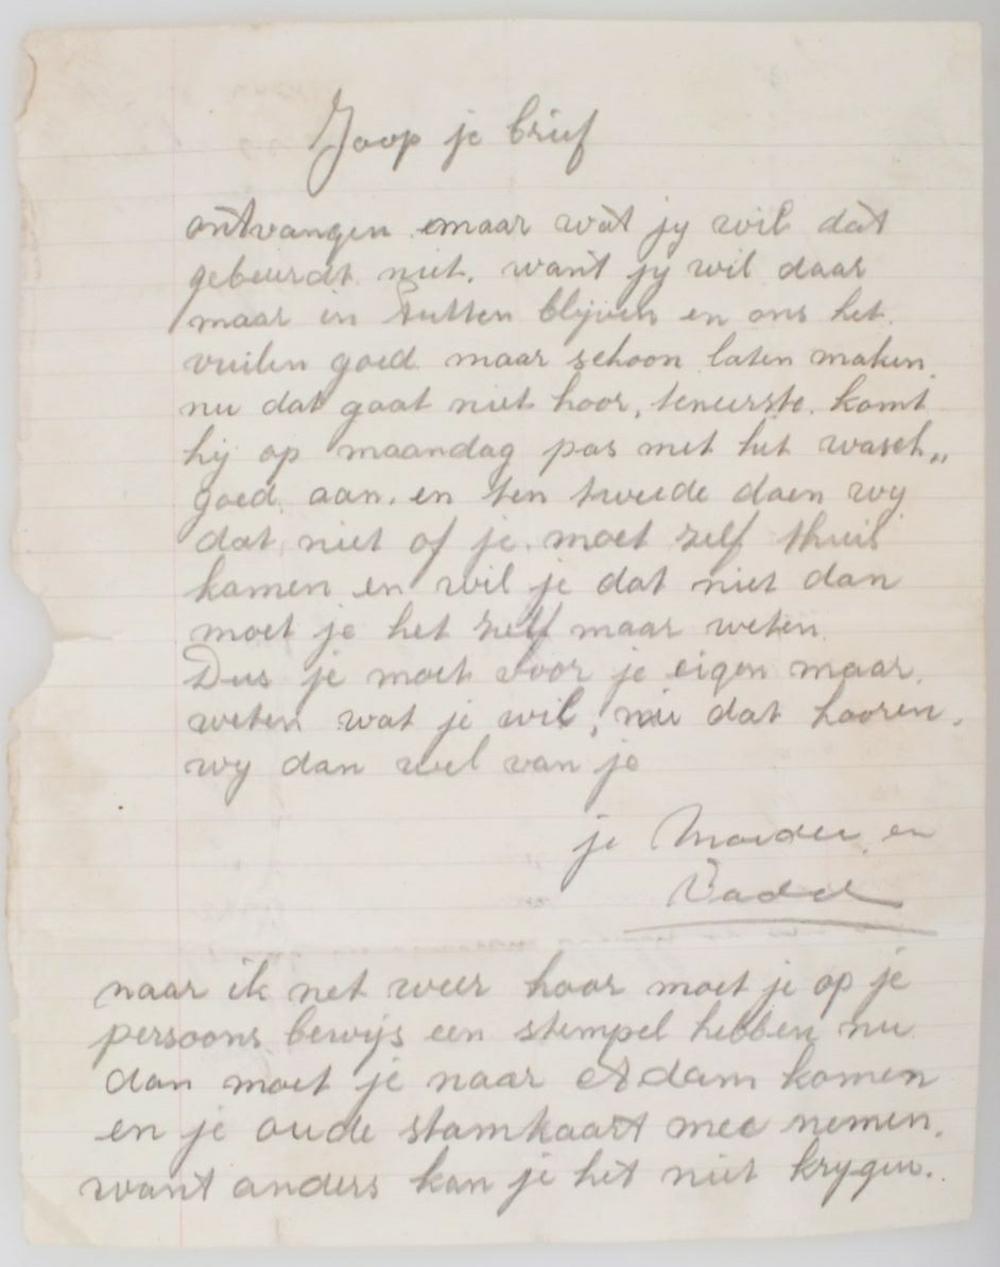 Joop je brief
ontvangen maar wat jy wil dat
gebeurdt niet. want jy wil daar
maar in Putten blijven en ons het
vuilen goed maar schoon laten maken.
nu dat gaat niet hoor, teneerste. komt
hij op maandag pas met het wasch„
goed aan. en ten tweede doen wy
dat niet of je moet zelf thuis
komen en wil je dat niet dan
moet je het zelf maar weten
Dus je moet voor je eigen maar
weten wat je wil, nu dat hooren
wy dan wel van je
je Moeder en
Vader
naar ik net weer hoor moet je op je
persoons bewijs een stempel hebben nu
dan moet je naar A dam komen
en je oude stamkaart mee nemen.
want anders kan je het niet krygen.